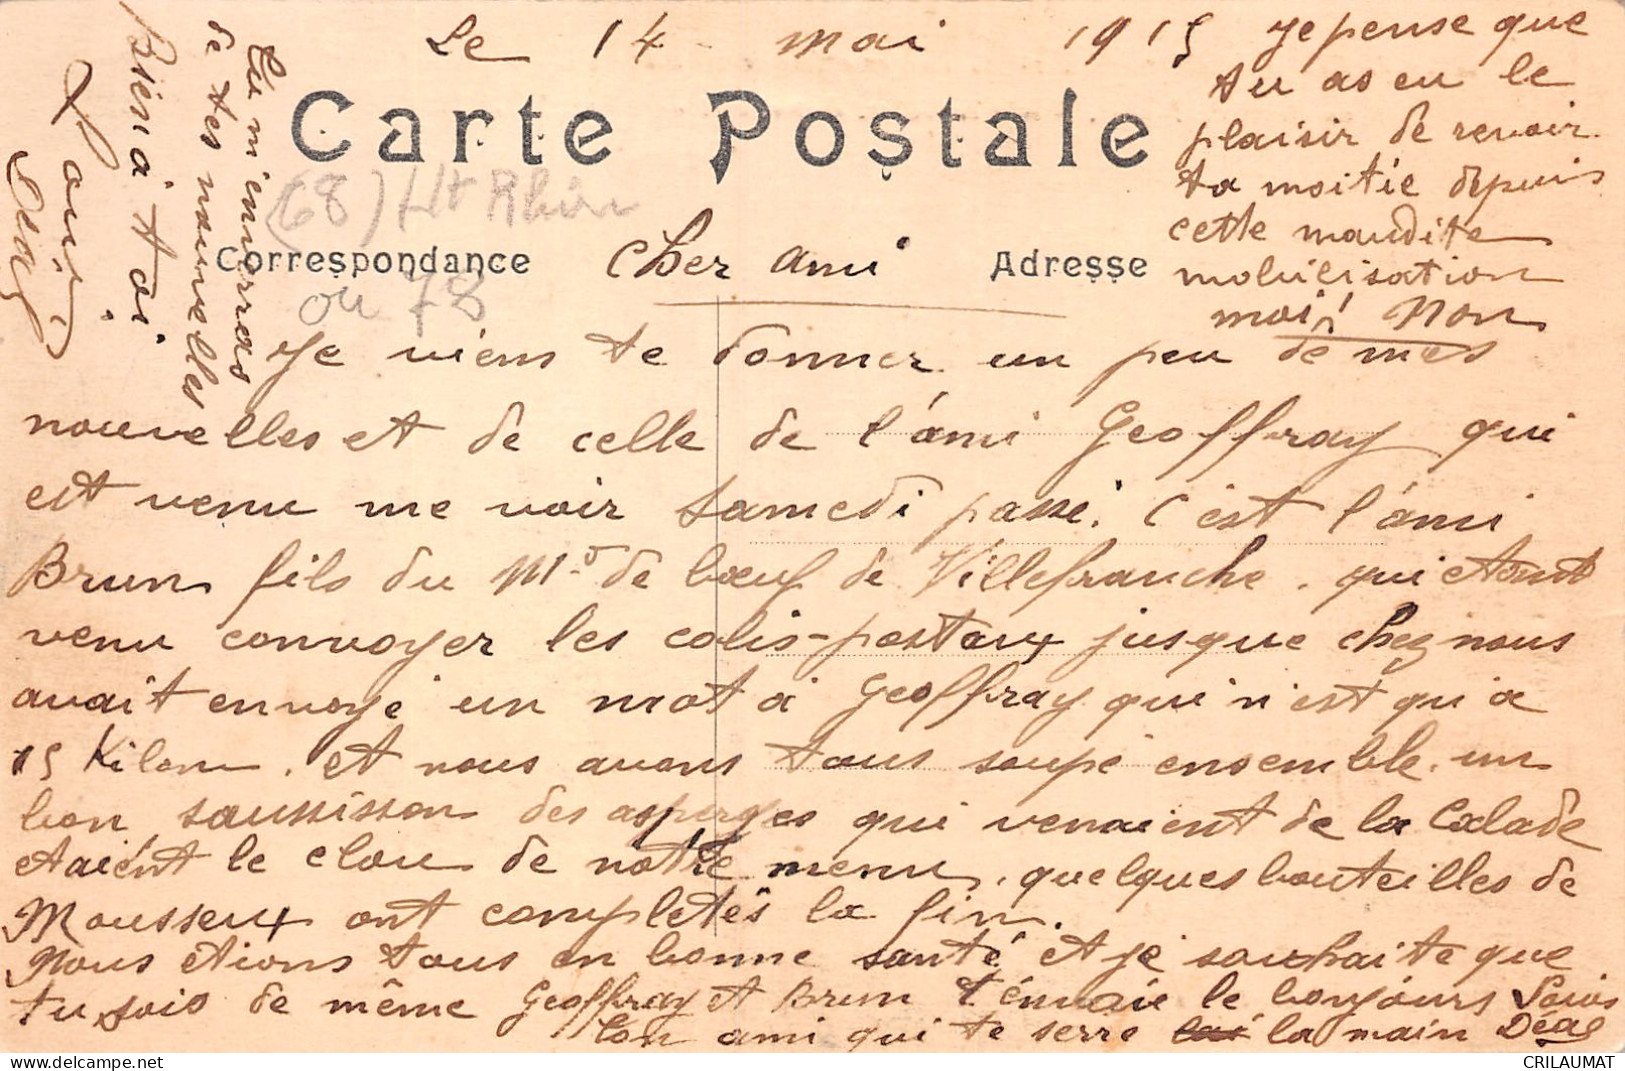 Le 14 mai 1915
Carte Postale
(68) Ht Rhin
Correspondance
ou 78
Adresse
Cher ami
Je viens te donner un peu de mes
nouvelles et de celle de l'ami Geoffray qui
est venu me voir samedi passé. C'est l'ami
Brun fils du Md de bœuf de Villefranche. qui etant
venu convoyer les colis-postaux jusque chez nous
avait envoyé un mot a Geoffray qui n'est qu'a
15 Kilom. et nous avons tous soupé ensemble. un
bon saussisson des asperges qui venaient de la Calade
etaient le clou de notre menu. quelques bouteilles de
Mousseux ont completés la fin.
Nous etions tous en bonne santé et je souhaite que
tu sois de même Geoffray et Brun t'envoie le bonjours
Ton ami qui te serre la main
Louis
Déal
Je pense que
tu as eu le
plaisir de revoir
ta moitie depuis
cette maudite
mobilisation
moi! Non
Tu m'enverras
de tes nouvelles
Bien a toi
Louis